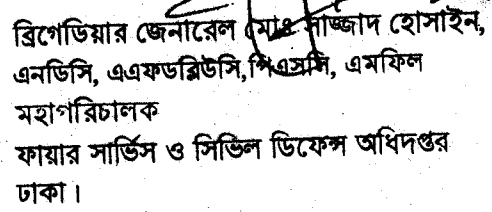 ব্রিগেডিয়ার জেনারেল মোঃ সাজ্জাদ হোসাইন,
এনডিসি, এএফডব্লিউসি, পিএসসি, এমফিল
মহাপরিচালক
ফায়ার সার্ভিস ও সিভিল ডিফেন্স অধিদপ্তর
ঢাকা।